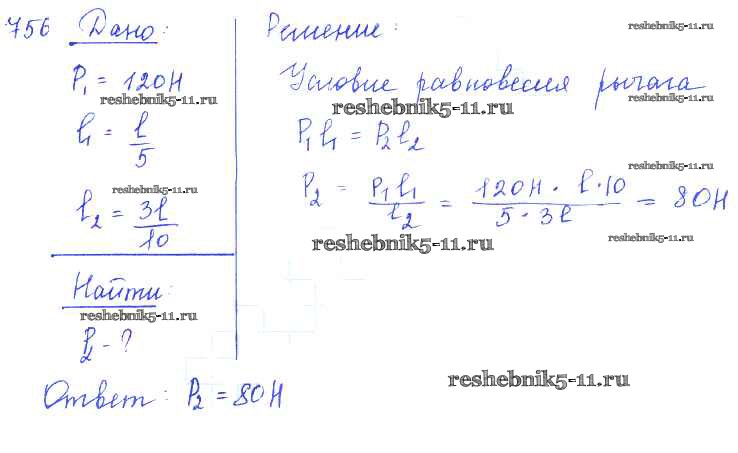 756 Дано:
P₁ = 120Н
l₁ = l/5
l₂ = 3l/10
Найти:
P₂ - ?
Решение:
Условие равновесия рычага
P₁l₁ = P₂l₂
P₂ = P₁l₁/l₂ = 120Н · l · 10/5 · 3l = 80Н
Ответ: P₂ = 80Н
reshebnik5-11.ru
reshebnik5-11.ru
reshebnik5-11.ru
reshebnik5-11.ru
reshebnik5-11.ru
reshebnik5-11.ru
reshebnik5-11.ru
reshebnik5-11.ru
reshebnik5-11.ru
reshebnik5-11.ru
reshebnik5-11.ru